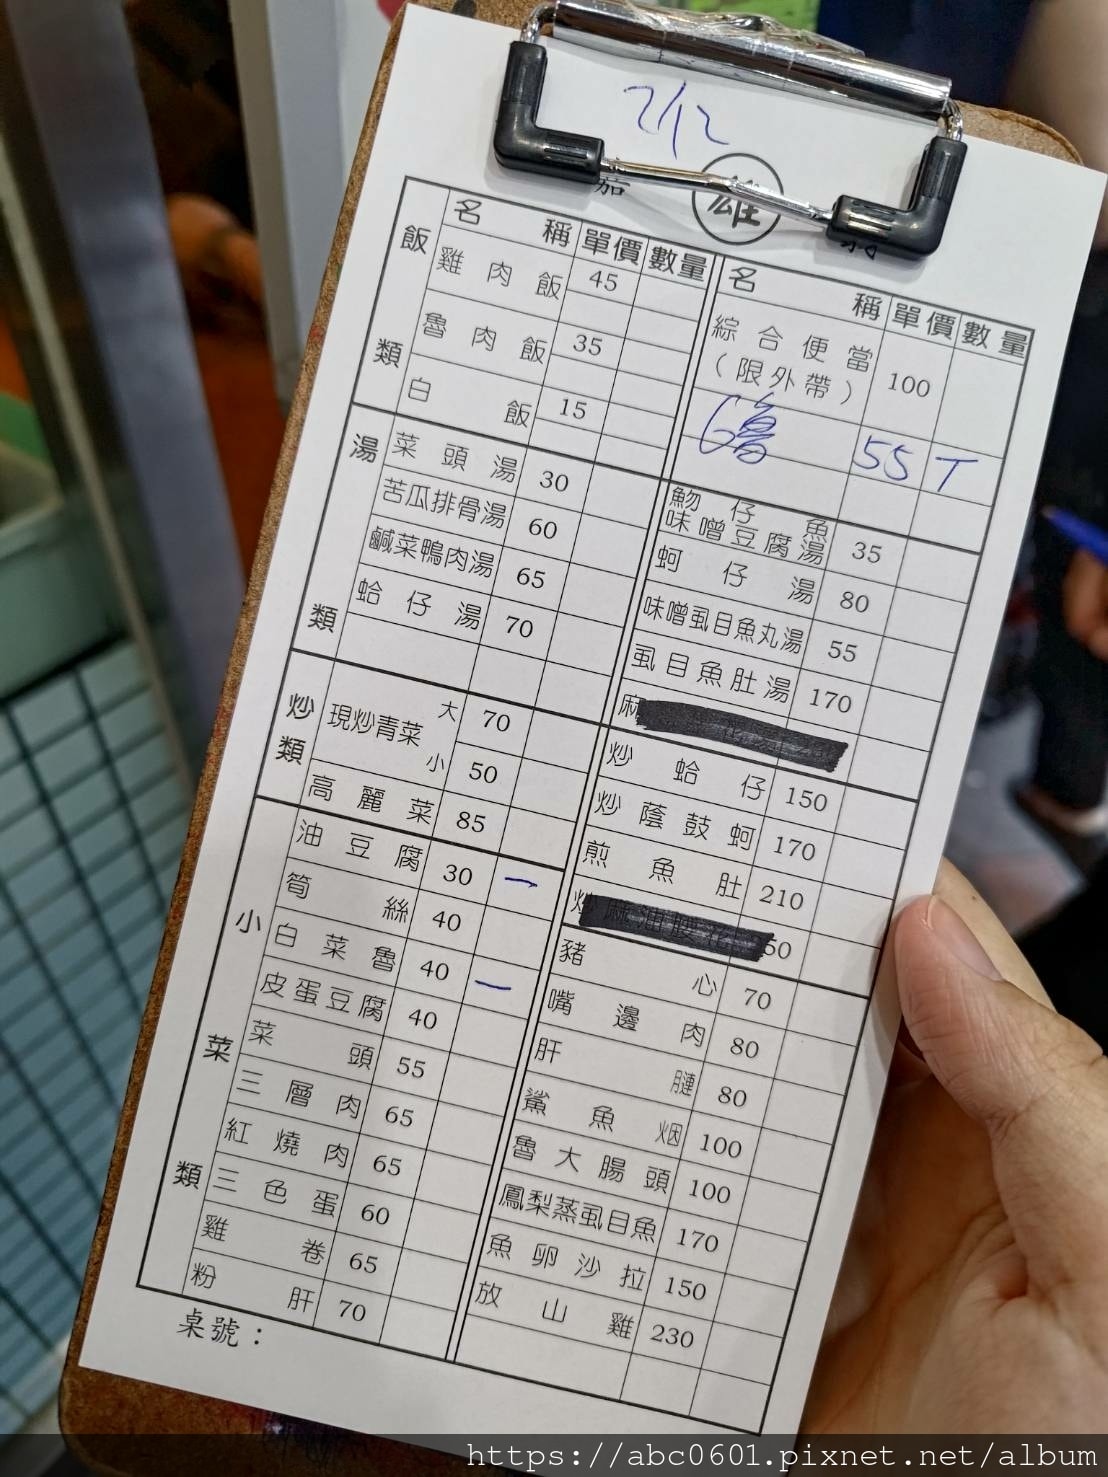 2位
茄 雄
名稱 單價 數量
飯類
雞肉飯 45
魯肉飯 35
白飯 15
湯類
菜頭湯 30
苦瓜排骨湯 60
鹹菜鴨肉湯 65
蛤仔湯 70
炒類
現炒青菜 大 70
小 50
高麗菜 85
小菜類
油豆腐 30 一
筍絲 40
白菜魯 40 一
皮蛋豆腐 40
菜頭 55
三層肉 65
紅燒肉 65
三色蛋 60
雞卷 65
粉肝 70
桌號：
名稱 單價 數量
綜合便當
(限外帶) 100
魯 55 T
魩仔魚
味噌豆腐湯 35
蚵仔湯 80
味噌虱目魚丸湯 55
虱目魚肚湯 170
麻
炒蛤仔 150
炒蔭鼓蚵 170
煎魚肚 210
炒麻油腰花 50
豬心 70
嘴邊肉 80
肝膉 80
鯊魚烟 100
魯大腸頭 100
鳳梨蒸虱目魚 170
魚卵沙拉 150
放山雞 230
https://abc0601.pixnet.net/album